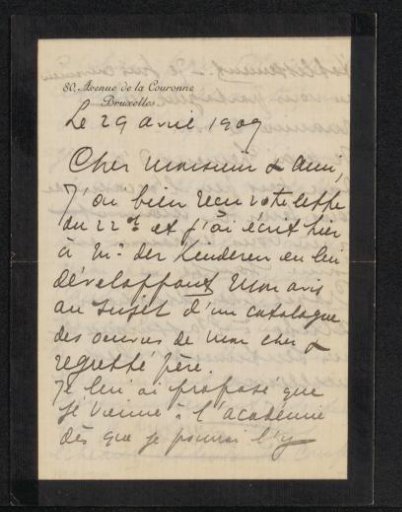 80, Avenue de la Couronne
Bruxelles
Le 29 avril 1909
Cher Monsieur & ami,
J'ai bien reçu votre lettre
du 22 et et j'ai écrit hier
à Mr. der Kinderen en lui
développant mon avis
au sujet d'un catalogue
des oeuvres de mon cher &
regretté père.
Je lui ai proposé que
je vienne à l'académie
dès que je pourrai l'y